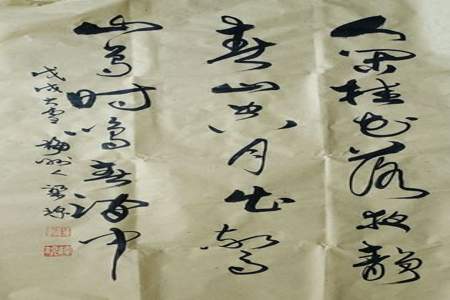 人闲桂花落夜静
春山空月出惊
山鸟时鸣春涧中
戊戌大雪